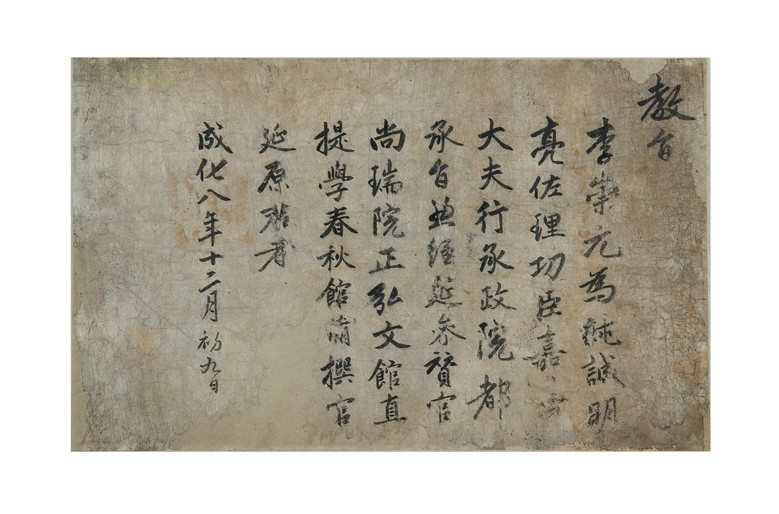 教旨
李崇元為純誠明
亮佐理功臣嘉善
大夫行承政院都
承旨兼經筵參贊官
尚瑞院正弘文館直
提學春秋館脩撰官
延原君者
成化八年十二月初九日